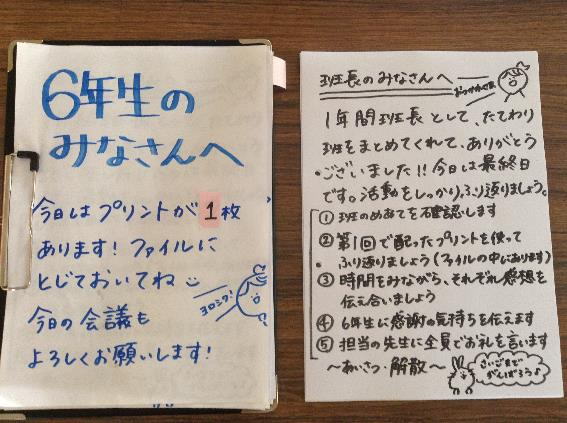 6年生の
みなさんへ
今日はプリントが1枚
あります！ファイルに
とじておいてね
ヨロシク！
今日の会議も
よろしくお願いします！
班長のみなさんへ
おつかれさま
1年間班長として、たてわり
班をまとめてくれて、ありがとう
ございました！！今日は最終日
です。活動をしっかりふり返りましょう。
①班のめあてを確認します
②第1回で配ったプリントを使って
ふり返りましょう（ファイルの中にあります）
③時間をみながら、それぞれ感想を
伝え合いましょう
④6年生に感謝の気持ちを伝えます
⑤担当の先生に全員でお礼を言います
〜あいさつ・解散〜
さいごまで
がんばろう♪